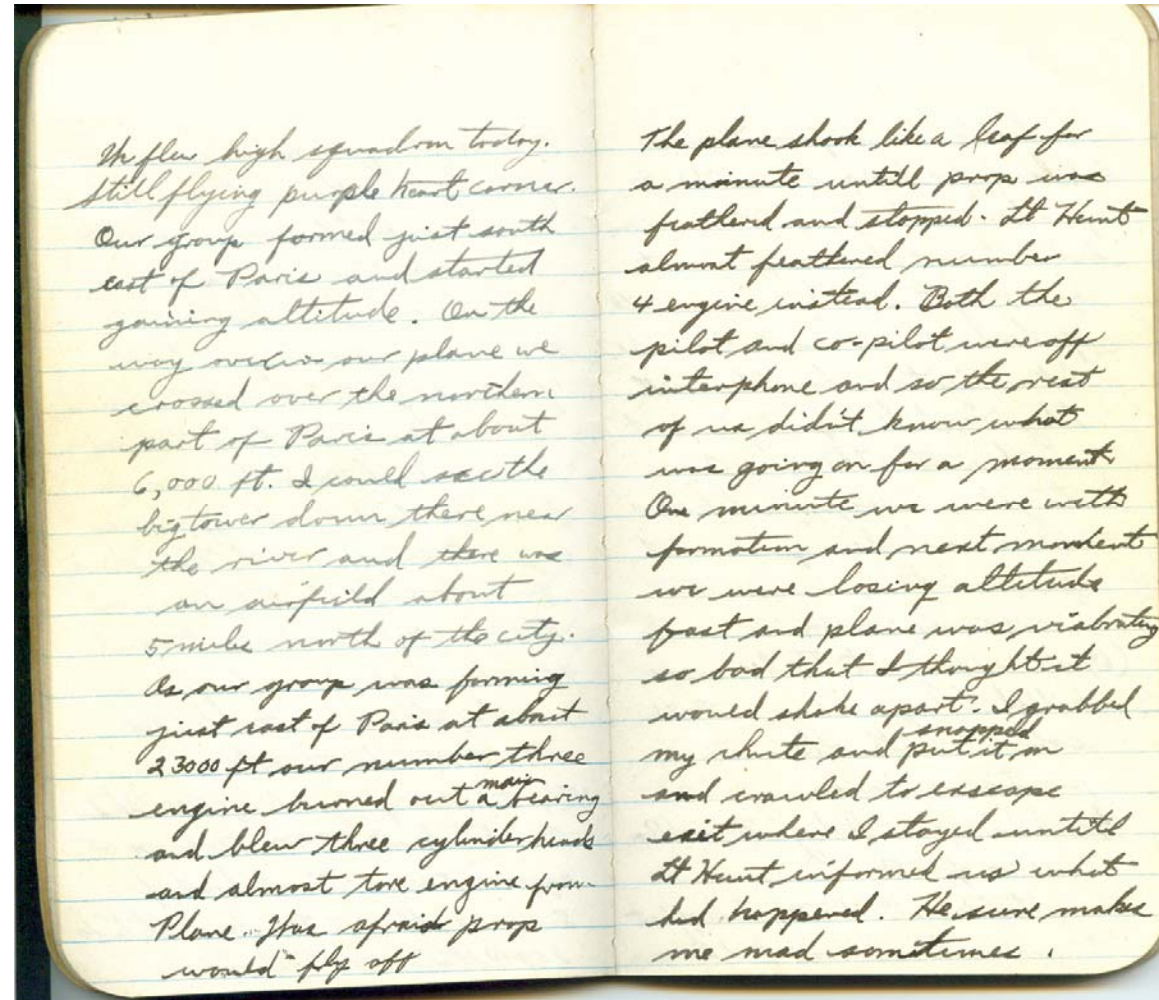 We flew high squadron today.
Still flying purple heart corner.
Our group formed just south
east of Paris and started
gaining altitude. On the
way over in our plane we
crossed over the northern
part of Paris at about
6,000 ft. I could see the
big tower down there near
the river and there was
an airfield about
5 miles north of the city.
As our group was forming
just east of Paris at about
23000 ft our number three
engine burned out a main bearing
and blew three cylinder heads
and almost tore engine from
Plane. I was afraid prop
would fly off
The plane shook like a leaf for
a minute untill prop was
feathered and stopped. Lt Hunt
almost feathered number
4 engine instead. Both the
pilot and co-pilot were off
interphone and so the rest
of us didn't know what
was going on for a moment.
One minute we were with
formation and next moment
we were losing altitude
fast and plane was viabrating
so bad that I thought it
would shake apart. I grabbed
my chute and snapped put it on
and crawled to esscape
exit where I stayed untill
Lt Hunt informed us what
had happened. He sure makes
me mad sometimes.